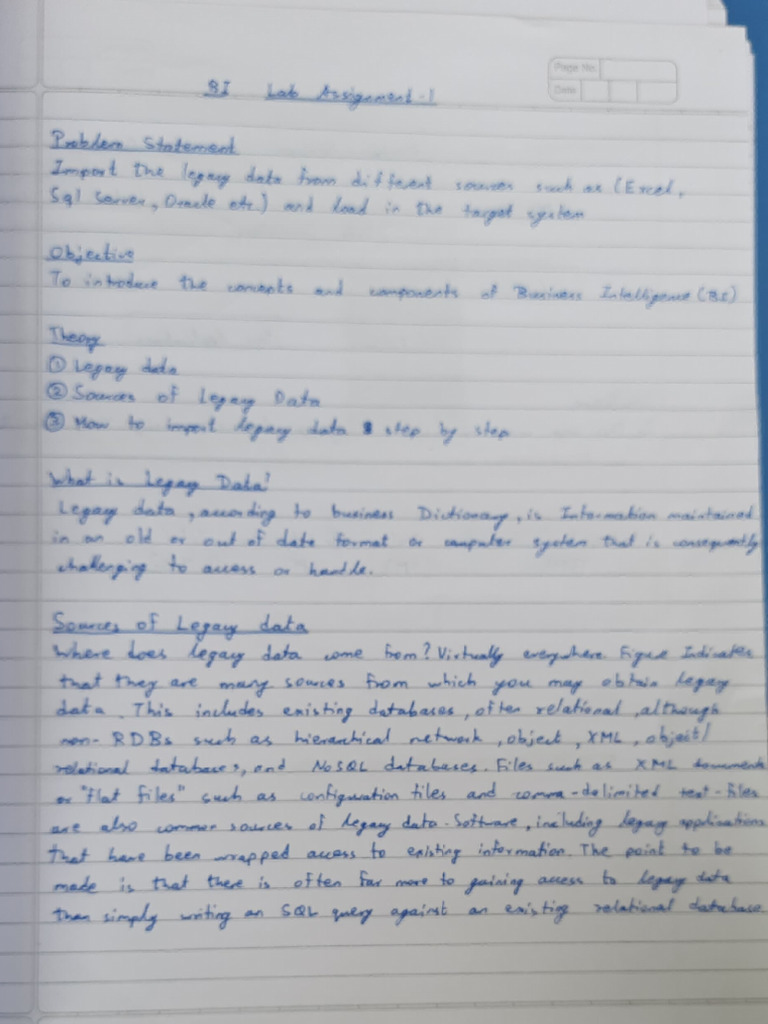 BI Lab Assignment-1
Page No.
Date
Problem Statement
Import the legacy data from different sources such as (Excel,
Sql Server, Oracle etc.) and load in the target system
Objective
To introduce the concepts and components of Business Intelligence (BI)
Theory
① Legacy data
② Sources of Legacy Data
③ How to import legacy data step by step
What is Legacy Data?
Legacy data, according to business Dictionary, is Information maintained
in an old or out of date format or computer system that is consequently
challenging to access or handle.
Sources of Legacy data
Where does legacy data come from? Virtually everywhere. Figure Indicates
that they are many sources from which you may obtain legacy
data. This includes existing databases, often relational, although
non-RDBs such as hierarchical network, object, XML, object/
relational databases, and NoSQL databases. Files such as XML documents
or "flat files" such as configuration files and comma-delimited text-files
are also common sources of legacy data. Software, including legacy applications
that have been wrapped access to existing information. The point to be
made is that there is often far more to gaining access to legacy data
than simply writing an SQL query against an existing relational database.